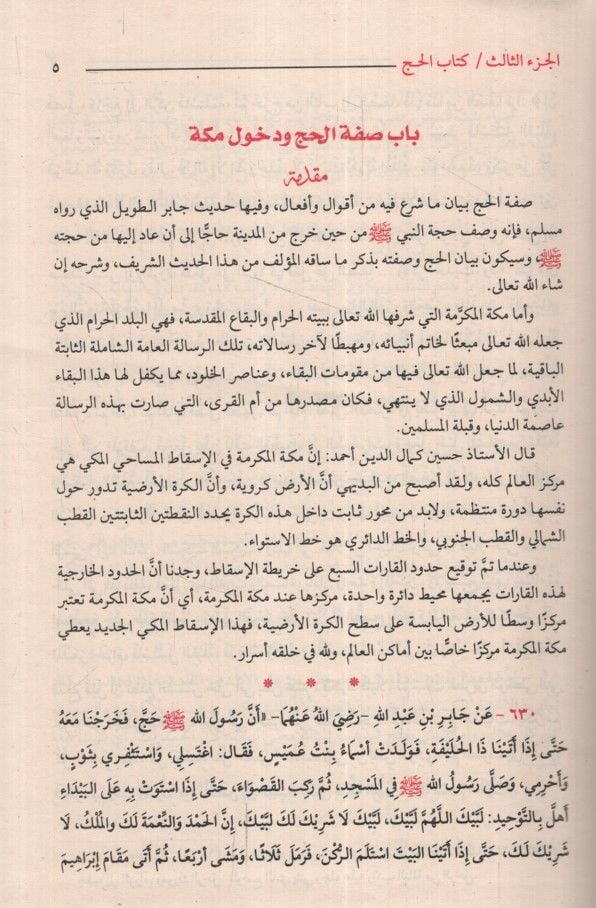 الجزء الثالث / كتاب الحج ٥
باب صفة الحج ودخول مكة
مقدمة
صفة الحج بيان ما شرع فيه من أقوال وأفعال، وفيها حديث جابر الطويل الذي رواه
مسلم، فإنه وصف حجة النبي ﷺ من حين خرج من المدينة حاجًّا إلى أن عاد إليها من حجته
ﷺ، وسيكون بيان الحج وصفته بذكر ما ساقه المؤلف من هذا الحديث الشريف، وشرحه إن
شاء الله تعالى.
وأما مكة المكرَّمة التي شرفها الله تعالى ببيته الحرام والبقاع المقدسة، فهي البلد الحرام الذي
جعله الله تعالى مبعثًا لخاتم أنبيائه، ومهبطًا لآخر رسالاته، تلك الرسالة العامة الشاملة الثابتة
الباقية، لما جعل الله تعالى فيها من مقومات البقاء، وعناصر الخلود، مما يكفل لها هذا البقاء
الأبدي والشمول الذي لا ينتهي، فكان مصدرها من أم القرى، التي صارت بهذه الرسالة
عاصمة الدنيا، وقبلة المسلمين.
قال الأستاذ حسين كمال الدين أحمد: إنَّ مكة المكرمة في الإسقاط المساحي المكي هي
مركز العالم كله، ولقد أصبح من البديهي أنَّ الأرض كروية، وأنَّ الكرة الأرضية تدور حول
نفسها دورة منتظمة، ولابد من محور ثابت داخل هذه الكرة يحدد النقطتين الثابتتين القطب
الشمالي والقطب الجنوبي، والخط الدائري هو خط الاستواء.
وعندما تمَّ توقيع حدود القارات السبع على خريطة الإسقاط، وجدنا أنَّ الحدود الخارجية
لهذه القارات يجمعها محيط دائرة واحدة، مركزها عند مكة المكرمة، أي أنَّ مكة المكرمة تعتبر
مركزًا وسطًا للأرض اليابسة على سطح الكرة الأرضية، فهذا الإسقاط المكي الجديد يعطي
مكة المكرمة مركزًا خاصًّا بين أماكن العالم، ولله في خلقه أسرار.
* * *
٦٣٠ - عَنْ جَابِرِ بْنِ عَبْدِ اللهِ -رَضِيَ اللهُ عَنْهُمَا- «أَنَّ رَسُولَ الله ﷺ حَجَّ، فَخَرَجْنَا مَعَهُ
حَتَّى إِذَا أَتَيْنَا ذَا الحُلَيْفَةِ، فَوَلَدَتْ أَسْمَاءُ بِنْتُ عُمَيْسٍ، فَقَالَ: اغْتَسِلِي، وَاسْتَثْفِرِي بِثَوْبٍ،
وَأَحْرِمِي، وَصَلَّى رَسُولُ الله ﷺ فِي المَسْجِدِ، ثُمَّ رَكِبَ القَصْوَاءَ، حَتَّى إِذَا اسْتَوَتْ بِهِ عَلَى البَيْدَاءِ
أَهلَّ بِالتَّوْحِيدِ: لَبَّيْكَ اللَّهُمَّ لَبَّيْكَ، لَبَّيْكَ لَا شَرِيكَ لَكَ لَبَّيْكَ، إِنَّ الحَمْدَ وَالنِّعْمَةَ لَكَ وَالمُلْكُ، لَا
شَرِيكَ لَكَ، حَتَّى إِذَا أَتَيْنَا البَيْتَ اسْتَلَمَ الرُّكْنَ، فَرَمَلَ ثَلَاثًا، وَمَشَى أَرْبَعًا، ثُمَّ أَتَى مَقَامَ إِبْرَاهِيمَ